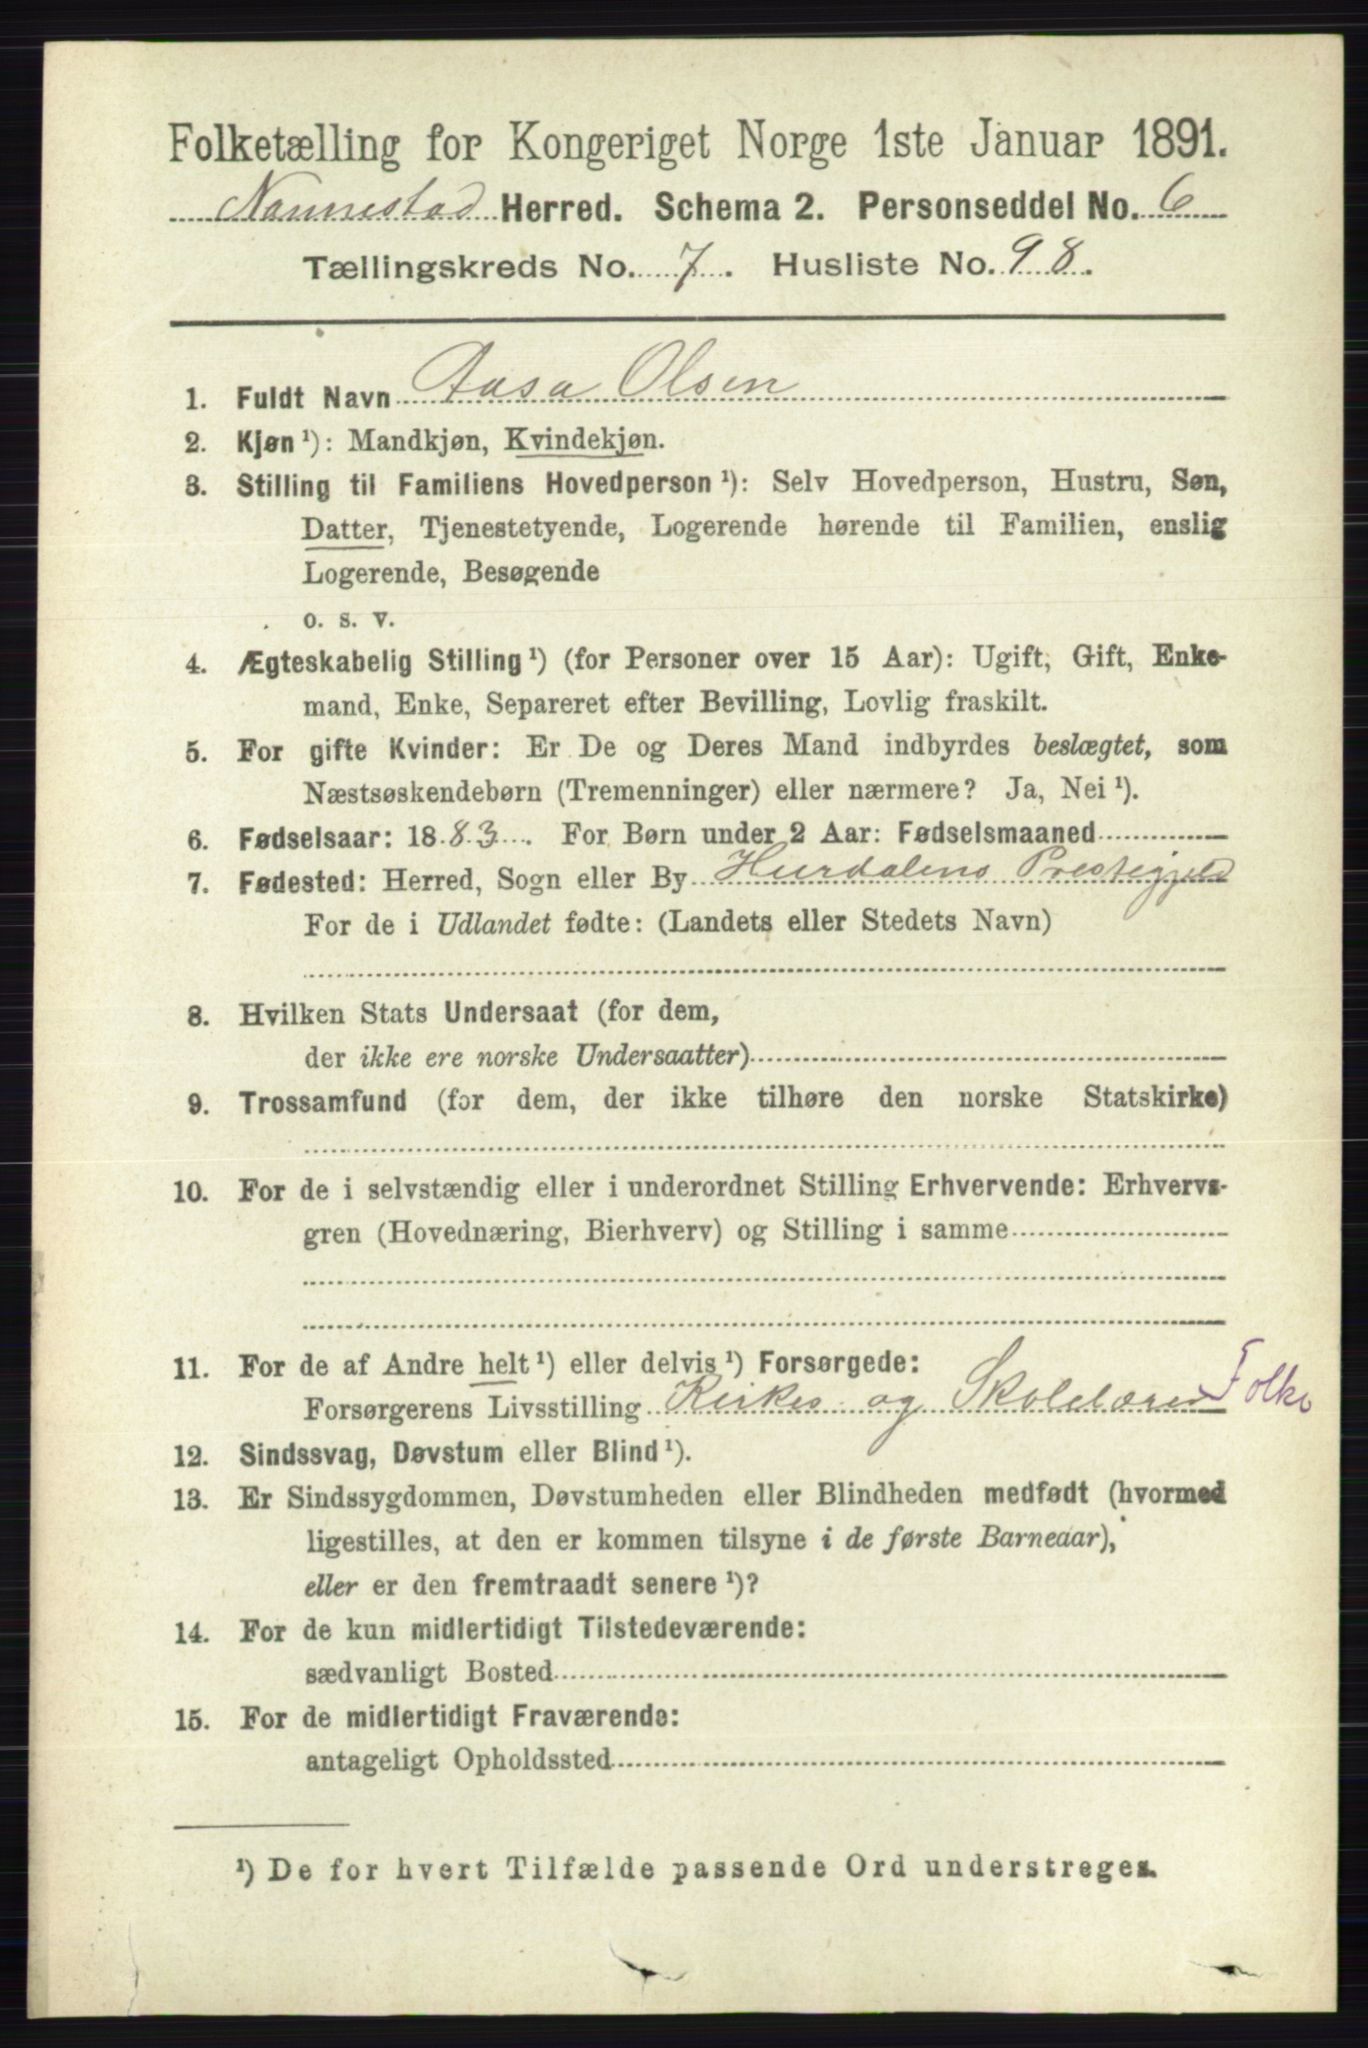 Folketælling for Kongeriget Norge 1ste Januar 1891.
Nannestad Herred. Schema 2. Personseddel No. 6
Tællingskreds No. 7. Husliste No. 98.
1. Fuldt Navn Aasa Olsen
2. Kjøn ¹): Mandkjøn, Kvindekjøn.
3. Stilling til Familiens Hovedperson ¹): Selv Hovedperson, Hustru, Søn,
Datter, Tjenestetyende, Logerende hørende til Familien, enslig
Logerende, Besøgende
o. s. v.
4. Ægteskabelig Stilling ¹) (for Personer over 15 Aar): Ugift, Gift, Enke-
mand, Enke, Separeret efter Bevilling, Lovlig fraskilt.
5. For gifte Kvinder: Er De og Deres Mand indbyrdes beslægtet, som
Næstsøskendebørn (Tremenninger) eller nærmere? Ja, Nei ¹).
6. Fødselsaar: 1883. For Børn under 2 Aar: Fødselsmaaned
7. Fødested: Herred, Sogn eller By Hurdalens Prestegjeld
For de i Udlandet fødte: (Landets eller Stedets Navn)
8. Hvilken Stats Undersaat (for dem,
der ikke ere norske Undersaatter)
9. Trossamfund (for dem, der ikke tilhøre den norske Statskirke)
10. For de i selvstændig eller i underordnet Stilling Erhvervende: Erhvervs-
gren (Hovednæring, Bierhverv) og Stilling i samme
11. For de af Andre helt ¹) eller delvis ¹) Forsørgede:
Forsørgerens Livsstilling Kirkes og Skolelærer Folke
12. Sindssvag, Døvstum eller Blind ¹).
13. Er Sindssygdommen, Døvstumheden eller Blindheden medfødt (hvormed
ligestilles, at den er kommen tilsyne i de første Barneaar),
eller er den fremtraadt senere ¹)?
14. For de kun midlertidigt Tilstedeværende:
sædvanligt Bosted
15. For de midlertidigt Fraværende:
antageligt Opholdssted
¹) De for hvert Tilfælde passende Ord understreges.